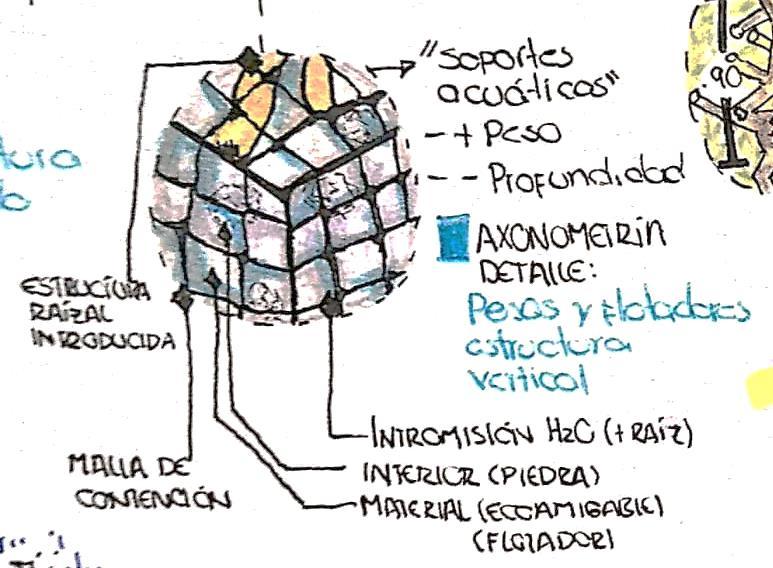 "Soportes
acuáticos"
- + Peso
- - Profundidad
AXONOMETRÍA
DETALLE:
Pesos y flotadores
estructura
vertical
90°
ESTRUCTURA
RAÍZAL
INTRODUCIDA
MALLA DE
CONTENCIÓN
INTROMISIÓN H2O (+ RAÍZ)
INTERIOR (PIEDRA)
MATERIAL (ECOAMIGABLE)
(FLOTADOR)